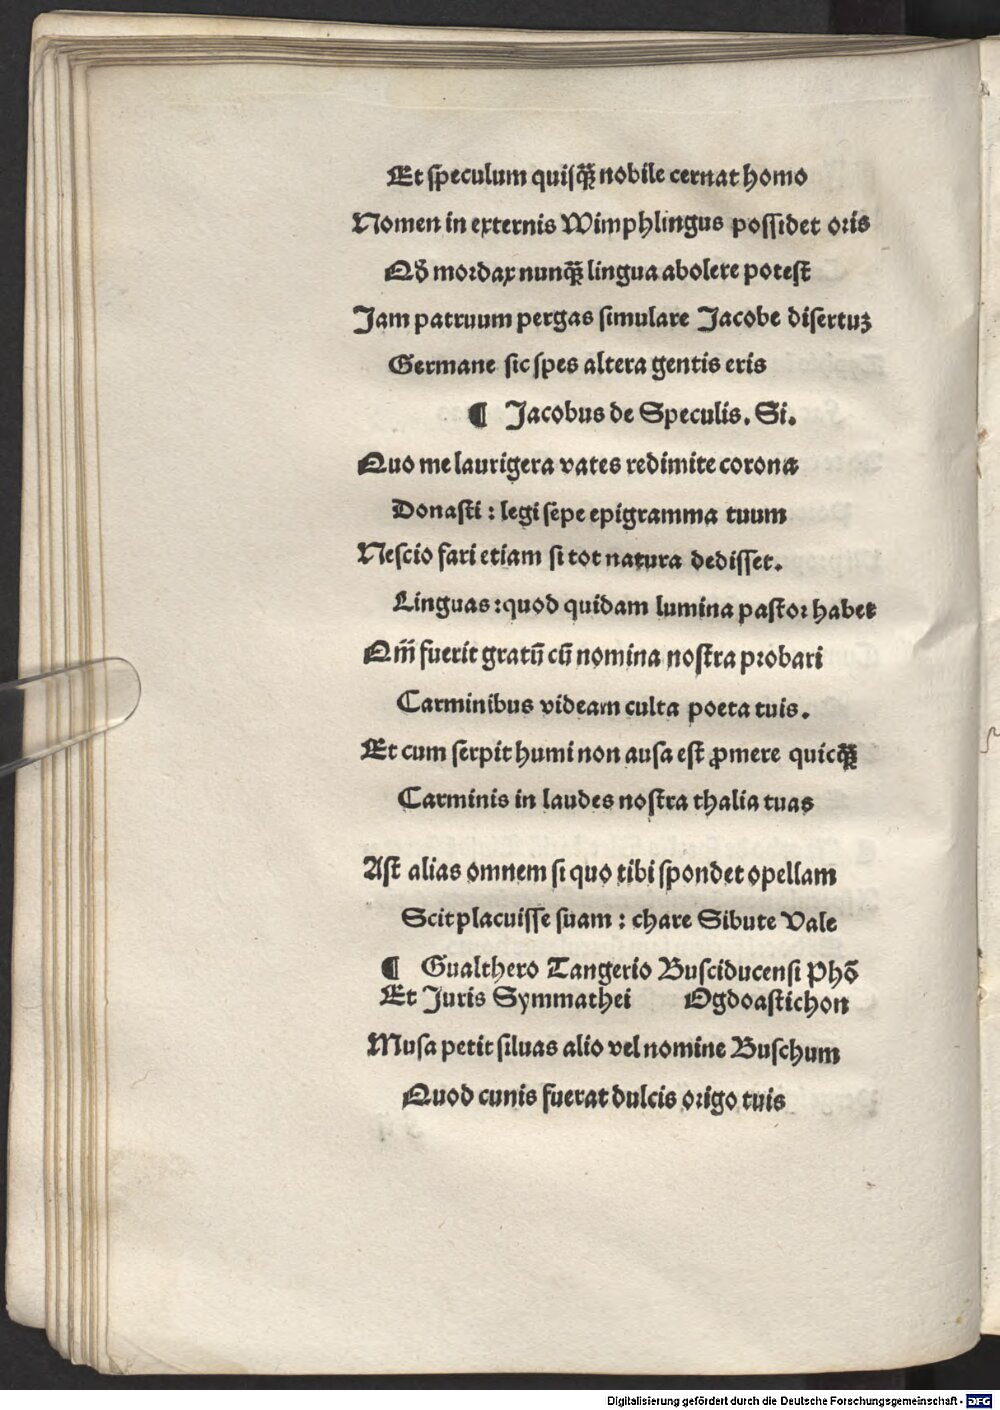 Et speculum quisq̃ nobile cernat homo
Nomen in externis Wimphlingus possidet oris
Qd̕ mordax nunq̃ lingua abolere potest
Jam patruum pergas simulare Jacobe disertuꝫ
Germane sic spes altera gentis eris
¶ Jacobus de Speculis. Si.
Quo me laurigera vates redimite corona
Donasti : legi sepe epigramma tuum
Nescio fari etiam si tot natura dedisset.
Linguas : quod quidam lumina pastor habet
Qm̃ fuerit gratū cū nomina nostra probari
Carminibus videam culta poeta tuis.
Et cum serpit humi non ausa est ꝓmere quicq̃
Carminis in laudes nostra thalia tuas
Ast alias omnem si quo tibi spondet opellam
Scit placuisse suam : chare Sibute Vale
¶ Gualthero Tangerio Busciducensi Phō
Et Juris Symmathei Ogdoastichon
Musa petit siluas alio vel nomine Buschum
Quod cunis fuerat dulcis origo tuis
Digitalisierung gefördert durch die Deutsche Forschungsgemeinschaft - DFG